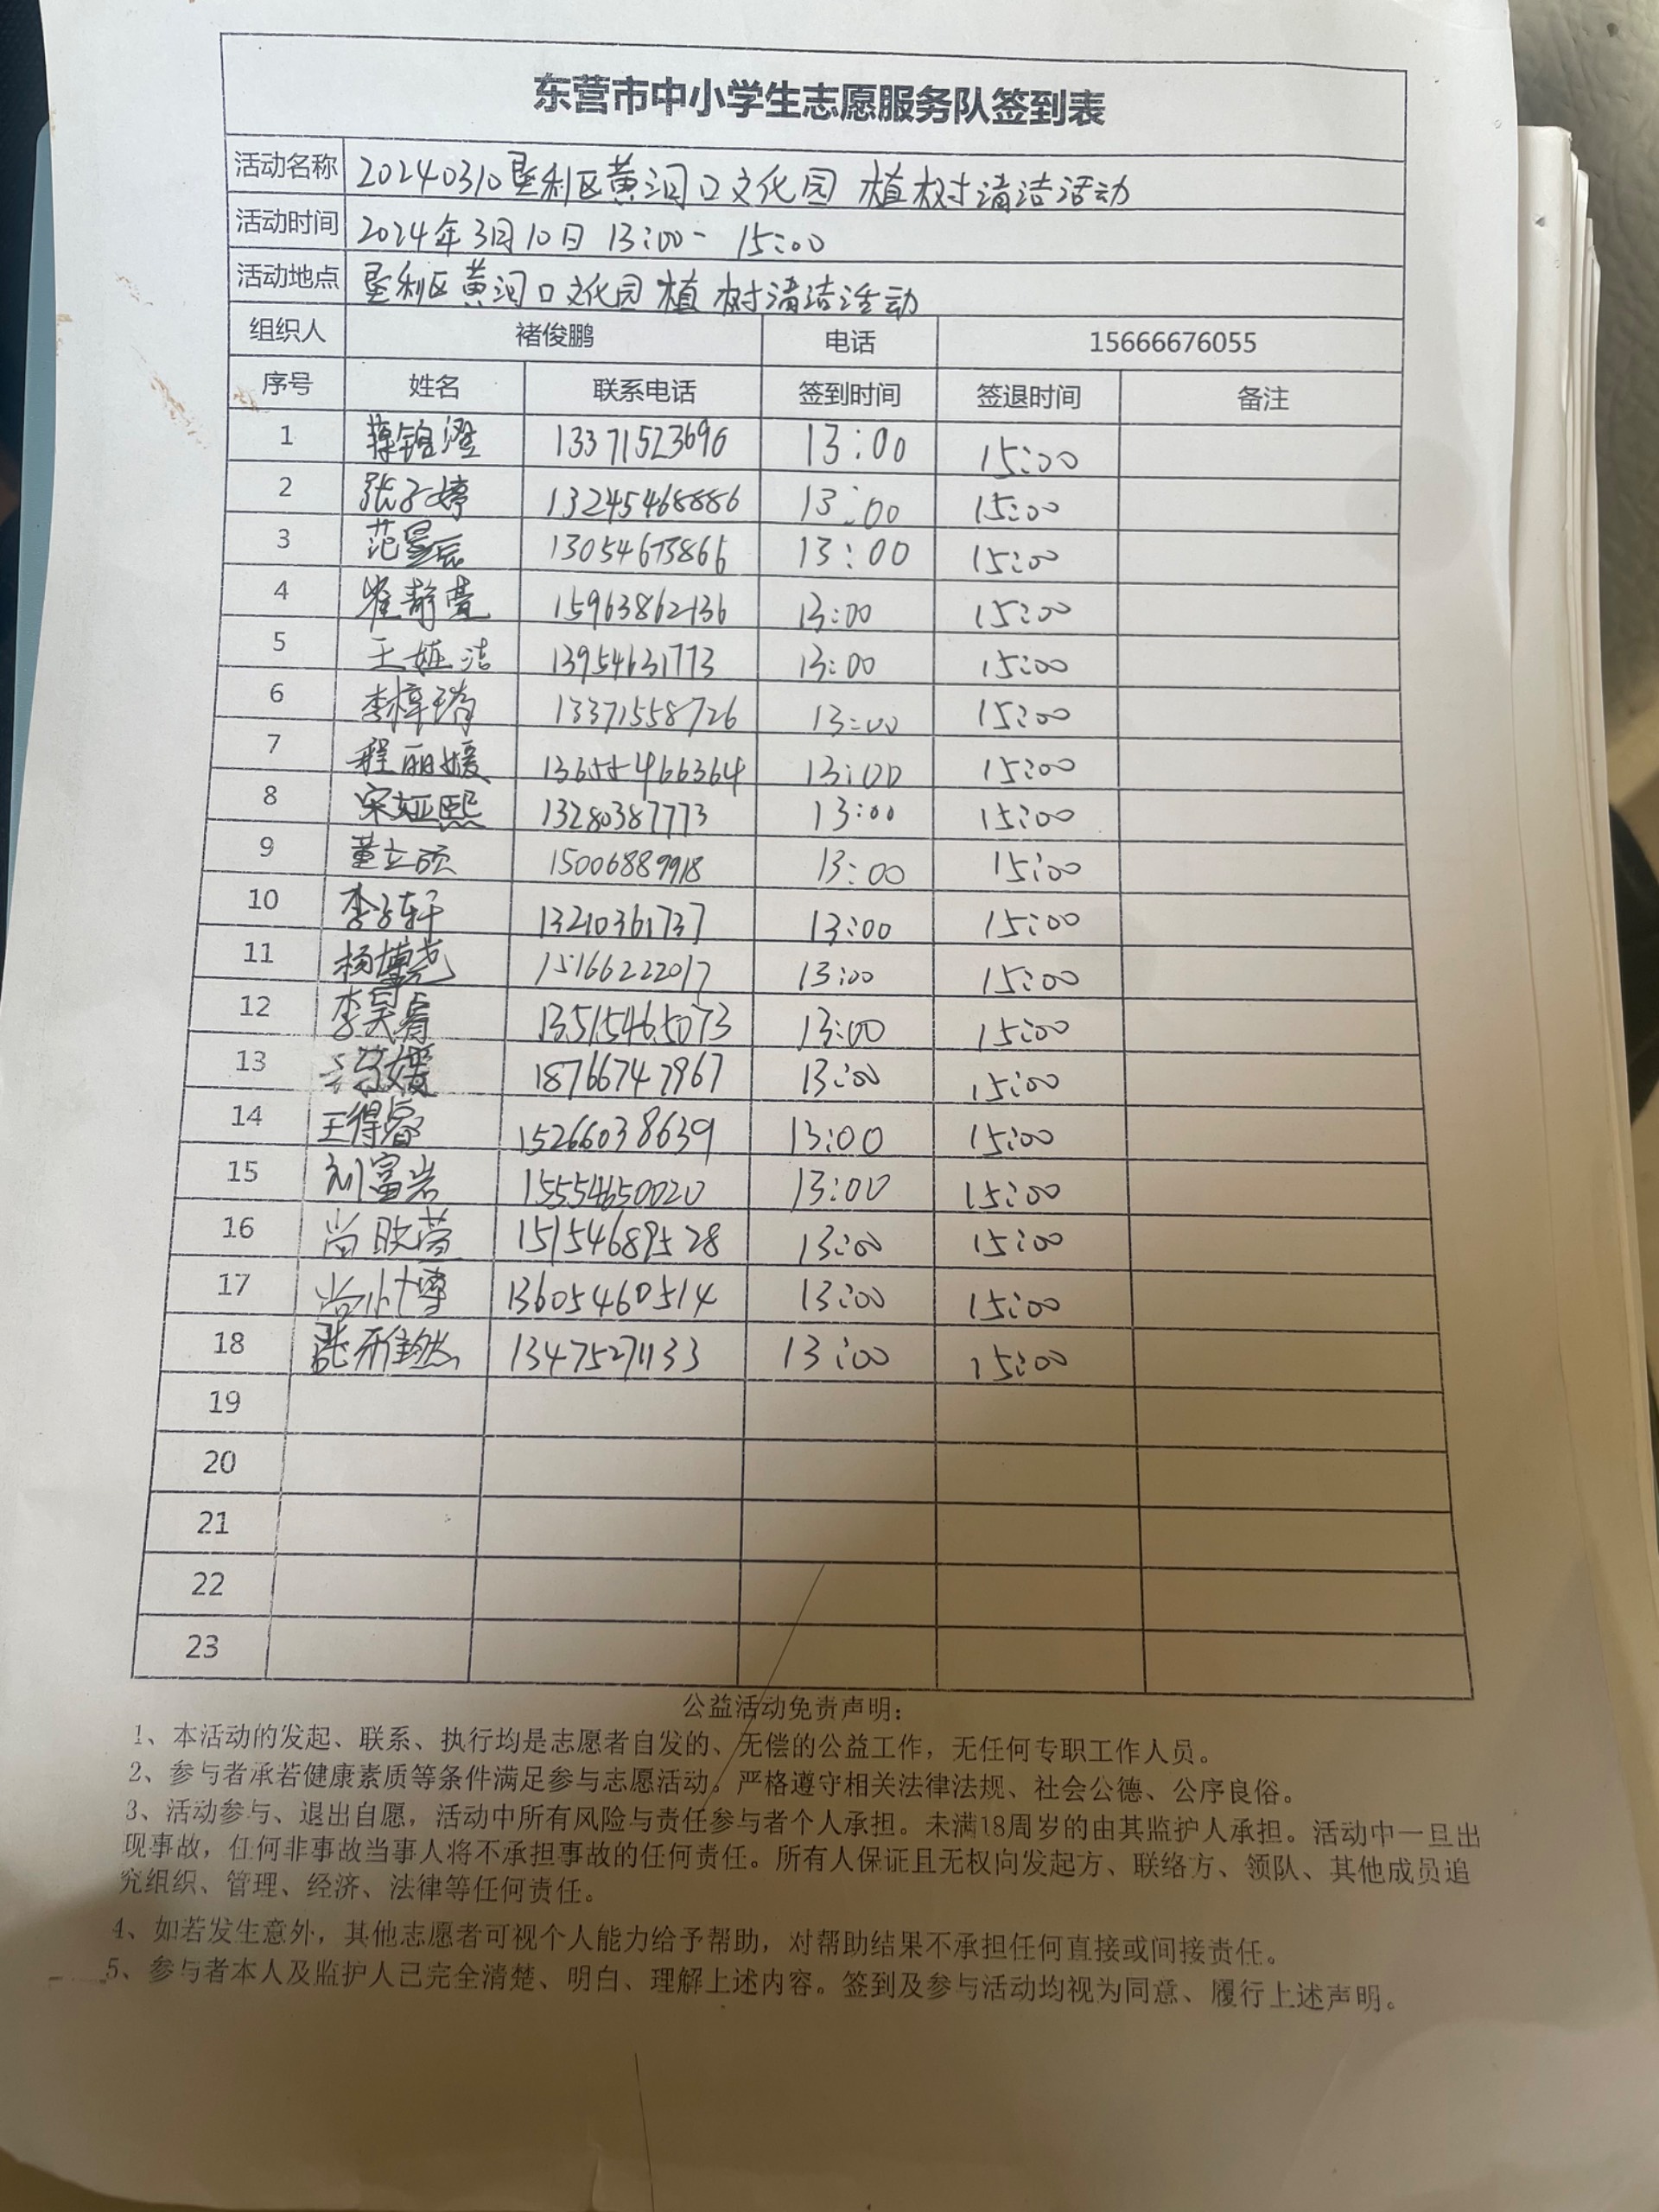 东营市中小学生志愿服务队签到表
活动名称 20240310垦利区黄河口文化园 植树清洁活动
活动时间 2024年3月10日 13:00- 15:00
活动地点 垦利区黄河口文化园 植树清洁活动
组织人 褚俊鹏 电话 15666676055
序号 姓名 联系电话 签到时间 签退时间 备注
1 13371523696 13:00 15:00
2 张子婷 13245468886 13:00 15:00
3 范昱辰 13054673866 13:00 15:00
4 崔静萱 15963862136 13:00 15:00
5 王娅洁 13954631773 13:00 15:00
6 李梓瑜 13371558726 13:00 15:00
7 程丽媛 13:00 15:00
8 宋娅熙 13280387773 13:00 15:00
9 董立硕 15006889918 13:00 15:00
10 李子轩 13210361737 13:00 15:00
11 杨博尧 15166222017 13:00 15:00
12 李昊睿 13515465073 13:00 15:00
13 18766747967 13:00 15:00
14 王得睿 15266038639 13:00 15:00
15 刘富岩 15554650020 13:00 15:00
16 15154689528 13:00 15:00
17 13605460514 13:00 15:00
18 张雅然 13475271133 13:00 15:00
19
20
21
22
23
公益活动免责声明：
1、本活动的发起、联系、执行均是志愿者自发的、无偿的公益工作，无任何专职工作人员。
2、参与者承若健康素质等条件满足参与志愿活动。严格遵守相关法律法规、社会公德、公序良俗。
3、活动参与、退出自愿，活动中所有风险与责任参与者个人承担。未满18周岁的由其监护人承担。活动中一旦出
现事故，任何非事故当事人将不承担事故的任何责任。所有人保证且无权向发起方、联络方、领队、其他成员追
究组织、管理、经济、法律等任何责任。
4、如若发生意外，其他志愿者可视个人能力给予帮助，对帮助结果不承担任何直接或间接责任。
5、参与者本人及监护人已完全清楚、明白、理解上述内容。签到及参与活动均视为同意、履行上述声明。